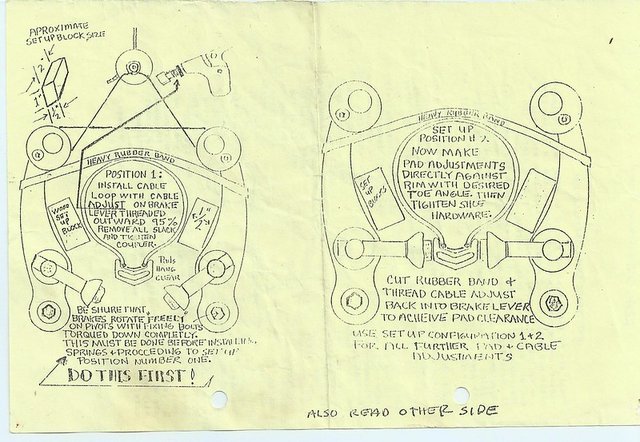 APROXIMATE
SET UP BLOCK SIZE
2"
1"
1/2"
HEAVY RUBBER BAND
POSITION 1:
INSTALL CABLE
LOOP WITH CABLE
ADJUST ON BRAKE
LEVER THREADED
OUTWARD 95%
REMOVE ALL SLACK
AND TIGHTEN
WOOD
SET
UP
BLOCK
PADS
HANG
CLEAR
BE SHURE THAT
BRAKES ROTATE FREELY
ON PIVOTS WITH FIXING BOLTS
TORQUED DOWN COMPLETLY.
THIS MUST BE DONE BEFORE INSTALLING
SPRINGS + PROCCEDING TO SET UP
POSITION NUMBER ONE.
DO THIS FIRST!
HEAVY RUBBER BAND
SET UP
POSITION # 2.
NOW MAKE
PAD ADJUSTMENTS
DIRECTLY AGAINST
RIM WITH DESIRED
TOE ANGLE. THEN
TIGHTEN SHOE
HARDWARE.
SET
UP
BLOCKS
CUT RUBBER BAND +
THREAD CABLE ADJUST
BACK INTO BRAKE LEVER
TO ACHEIVE PAD CLEARANCE
USE SET UP CONFIGURATION 1+2
FOR ALL FURTHER PAD + CABLE
ADJUSTMENTS
ALSO READ OTHER SIDE